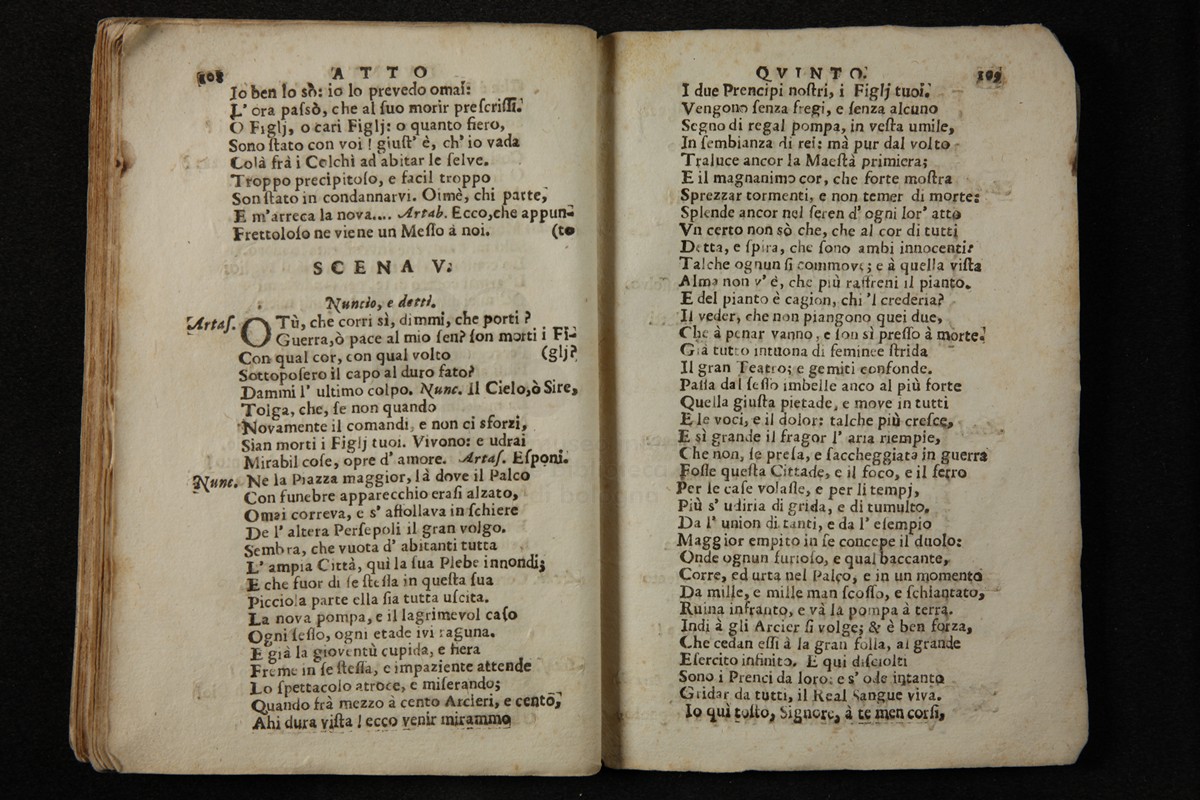 108 ATTO
Io ben lo sò: io lo prevedo omai:
L' ora passò, che al suo morir prescrissi.
O Figlj, o cari Figlj: o quanto fiero,
Sono stato con voi! giust' è, ch' io vada
Colà frà i Colchi ad abitar le selve.
Troppo precipitoso, e facil troppo
Son stato in condannarvi. Oimè, chi parte,
E m'arreca la nova.... Artab. Ecco, che appun-
Frettoloso ne viene un Messo à noi. (to
SCENA V.
Nuncio, e detti.
Artas. O Tù, che corri sì, dimmi, che porti?
Guerra, ò pace al mio sen? son morti i Fi-
Con qual cor, con qual volto (glj?
Sottoposero il capo al duro fato?
Dammi l' ultimo colpo. Nunc. Il Cielo, ò Sire,
Tolga, che, se non quando
Novamente il comandi, e non ci sforzi,
Sian morti i Figlj tuoi. Vivono: e udrai
Mirabil cose, opre d' amore. Artas. Esponi.
Nunc. Ne la Piazza maggior, là dove il Palco
Con funebre apparecchio erasi alzato,
Omai correva, e s' affollava in schiere
De l' altera Persepoli il gran volgo.
Sembra, che vuota d' abitanti tutta
L' ampia Città, quì la sua Plebe innondi;
E che fuor di se stessa in questa sua
Picciola parte ella sia tutta uscita.
La nova pompa, e il lagrimevol caso
Ogni sesso, ogni etade ivi raguna.
E già la gioventù cupida, e fiera
Freme in se stessa, e impaziente attende
Lo spettacolo atroce, e miserando;
Quando frà mezzo à cento Arcieri, e cento,
Ahi dura vista! ecco venir mirammo
QVINTO. 109
I due Prencipi nostri, i Figlj tuoi.
Vengono senza fregi, e senza alcuno
Segno di regal pompa, in vesta umile,
In sembianza di rei: mà pur dal volto
Traluce ancor la Maestà primiera;
E il magnanimo cor, che forte mostra
Sprezzar tormenti, e non temer di morte:
Splende ancor nel seren d' ogni lor' atto
Vn certo non sò che, che al cor di tutti
Detta, e spira, che sono ambi innocenti:
Talche ognun si commove; e à quella vista
Alma non v' è, che più raffreni il pianto.
E del pianto è cagion, chi 'l crederia?
Il veder, che non piangono quei due,
Che à penar vanno, e son sì presso à morte.
Già tutto intuona di feminee strida
Il gran Teatro; e gemiti confonde.
Passa dal sesso imbelle anco al più forte
Quella giusta pietade, e move in tutti
E le voci, e il dolor: talche più cresce,
E sì grande il fragor l' aria riempie,
Che non, se presa, e saccheggiata in guerra
Fosse questa Cittade, e il foco, e il ferro
Per le case volasse, e per li tempj,
Più s' udiria di grida, e di tumulto.
Da l' union di tanti, e da l' esempio
Maggior empito in se concepe il duolo:
Onde ognun furioso, e qual baccante,
Corre, ed urta nel Palco, e in un momento
Da mille, e mille man scosso, e schiantato,
Ruina infranto, e và la pompa à terra.
Indi à gli Arcier si volge; & è ben forza,
Che cedan essi à la gran folla, al grande
Esercito infinito. E qui disciolti
Sono i Prenci da loro: e s' ode intanto
Gridar da tutti, il Real Sangue viva.
Io quì tosto, Signore, à te men corsi,